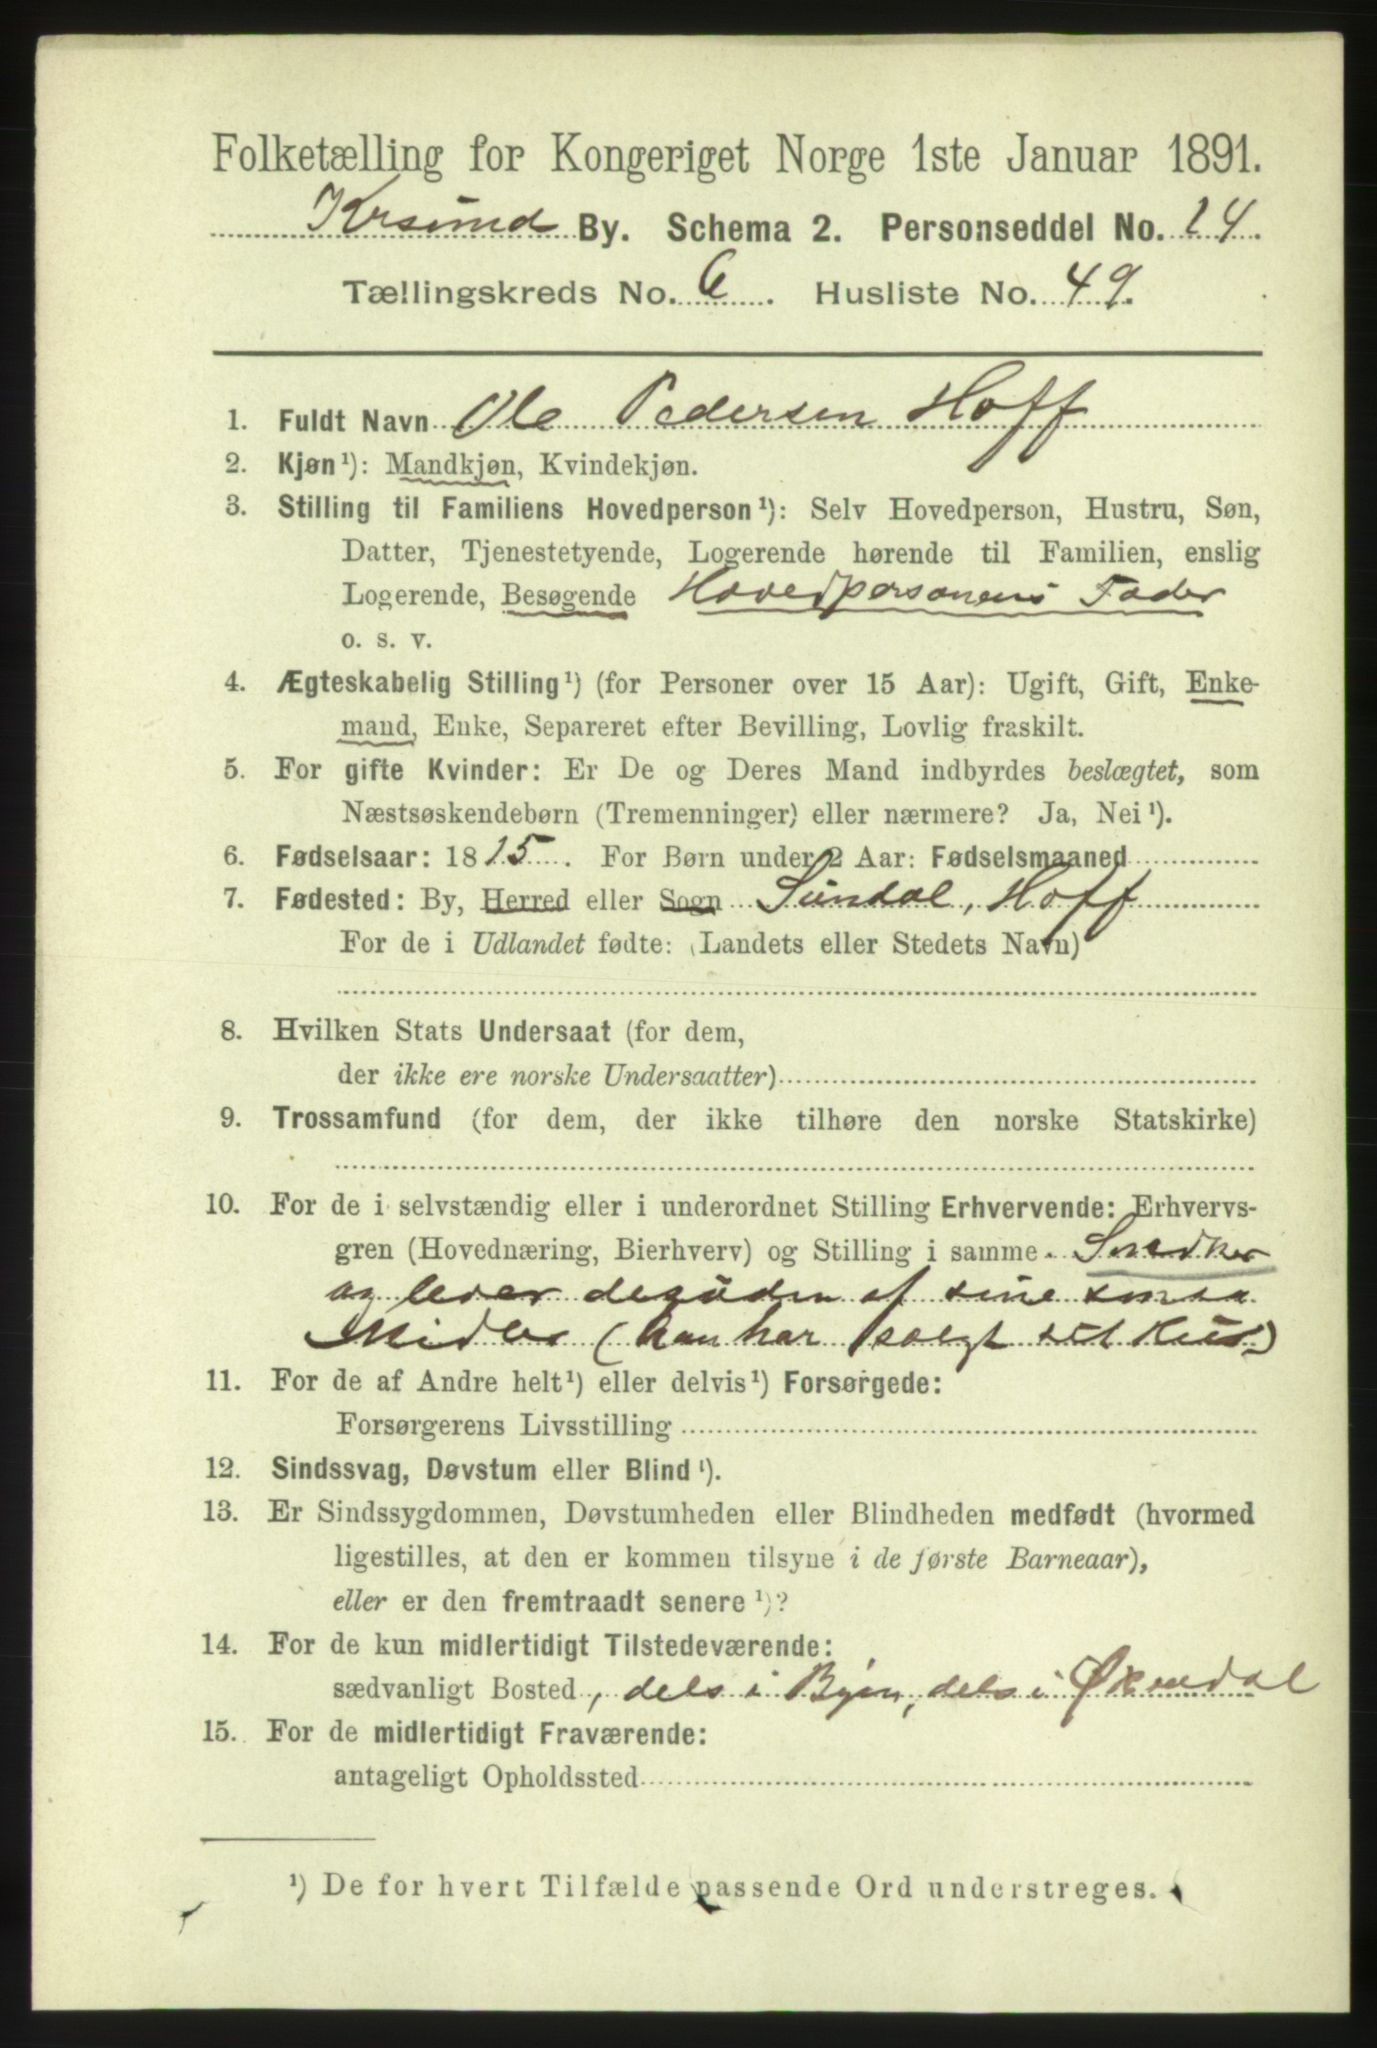 Folketælling for Kongeriget Norge 1ste Januar 1891.
Krsund By. Schema 2. Personseddel No. 14.
Tællingskreds No. 6. Husliste No. 49.
1. Fuldt Navn Ole Pedersen Hoff
2. Kjøn¹): Mandkjøn, Kvindekjøn.
3. Stilling til Familiens Hovedperson¹): Selv Hovedperson, Hustru, Søn,
Datter, Tjenestetyende, Logerende hørende til Familien, enslig
Logerende, Besøgende Hovedpersonens Fader
o. s. v.
4. Ægteskabelig Stilling¹) (for Personer over 15 Aar): Ugift, Gift, Enke-
mand, Enke, Separeret efter Bevilling, Lovlig fraskilt.
5. For gifte Kvinder: Er De og Deres Mand indbyrdes beslægtet, som
Næstsøskendebørn (Tremenninger) eller nærmere? Ja, Nei¹).
6. Fødselsaar: 1815. For Børn under 2 Aar: Fødselsmaaned
7. Fødested: By, Herred eller Sogn Sundal, Hoff
For de i Udlandet fødte: (Landets eller Stedets Navn)
8. Hvilken Stats Undersaat (for dem,
der ikke ere norske Undersaatter)
9. Trossamfund (for dem, der ikke tilhøre den norske Statskirke)
10. For de i selvstændig eller i underordnet Stilling Erhvervende: Erhvervs-
gren (Hovednæring, Bierhverv) og Stilling i samme. Snedker
og lever desuden af sine smaa
Midler (han har solgt sit Hus)
11. For de af Andre helt¹) eller delvis¹) Forsørgede:
Forsørgerens Livsstilling
12. Sindssvag, Døvstum eller Blind¹).
13. Er Sindssygdommen, Døvstumheden eller Blindheden medfødt (hvormed
ligestilles, at den er kommen tilsyne i de første Barneaar),
eller er den fremtraadt senere¹)?
14. For de kun midlertidigt Tilstedeværende:
sædvanligt Bosted, dels i Byen, dels i Øksendal
15. For de midlertidigt Fraværende:
antageligt Opholdssted
¹) De for hvert Tilfælde passende Ord understreges.